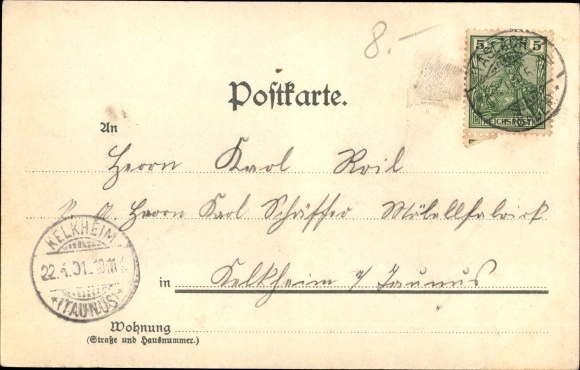 8.–
5 5
REICHSPOST
Postkarte.
An
Herrn Karl Roil
Herrn Karl Schäffer Möbellfabrick
KELKHEIM
22.4.01.
(TAUNUS)
in Kelkheim i/ Taunus
Wohnung
(Straße und Hausnummer.)